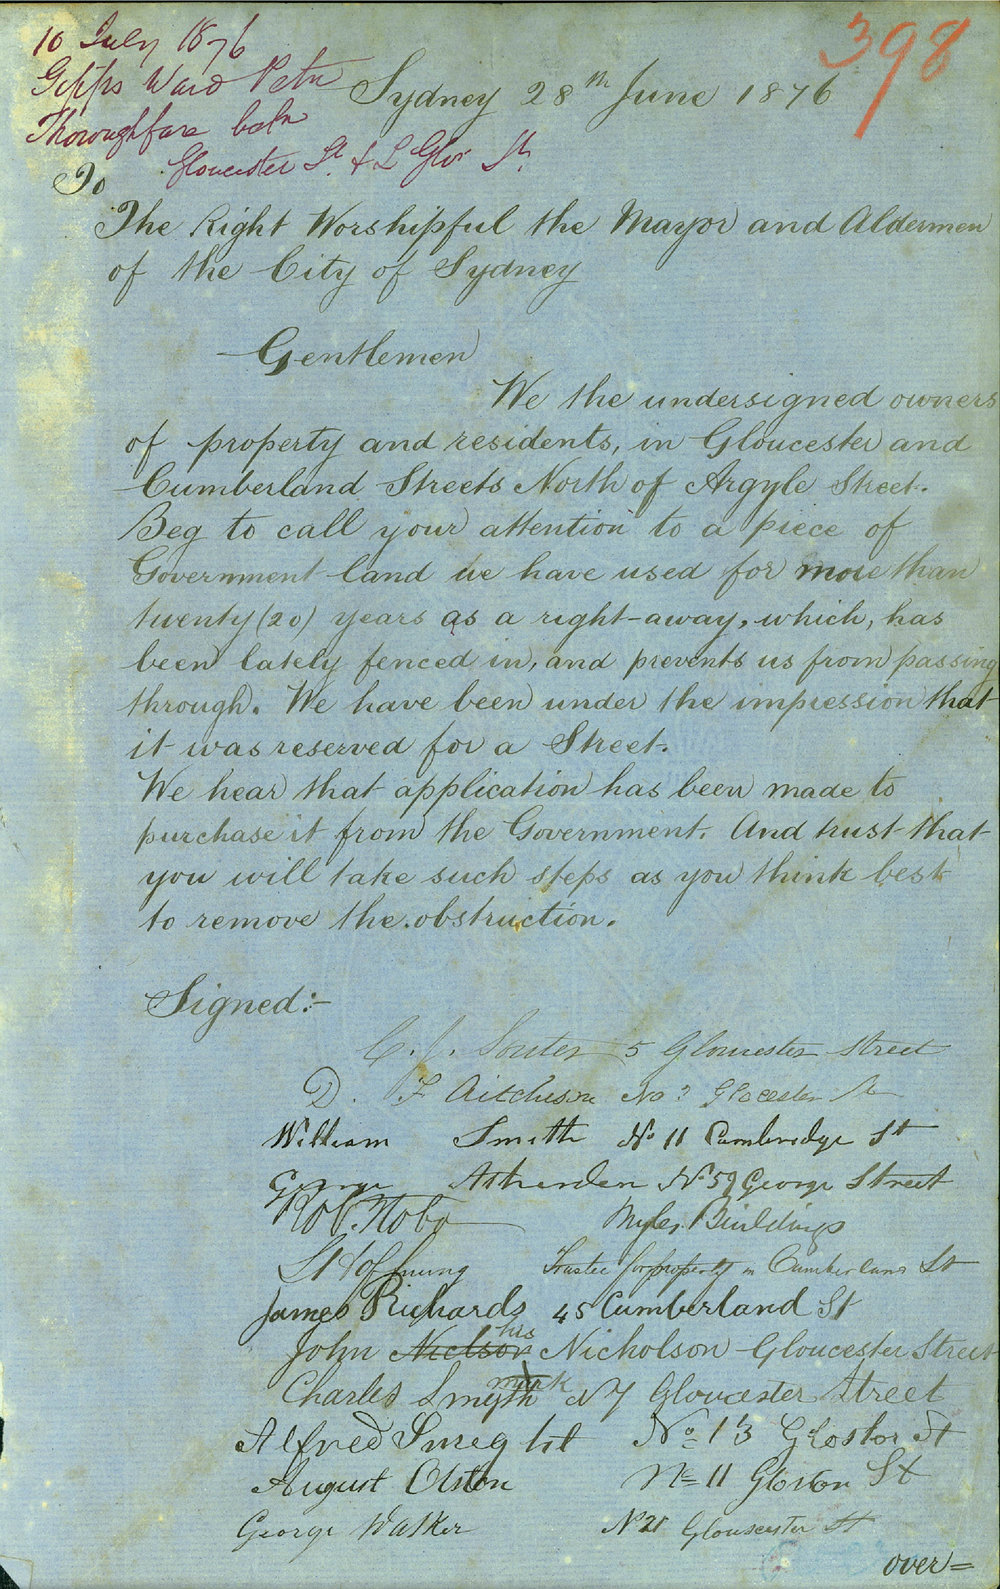 398
10 July 1876
Gipps Ward Petn
Thoroughfare betn
Gloucester St. & L Glo'r St.
Sydney 28th June 1876
To
The Right Worshipful the Mayor and Aldermen
of the City of Sydney
Gentlemen
We the undersigned owners
of property and residents, in Gloucester and
Cumberland Streets North of Argyle Street.
Beg to call your attention to a piece of
Government land we have used for more than
twenty (20) years as a right-away, which, has
been lately fenced in, and prevents us from passing
through. We have been under the impression that
it was reserved for a Street.
We hear that application has been made to
purchase it from the Government. And trust that
you will take such steps as you think best
to remove the obstruction.
Signed:-
C. J. Souter 5 Gloucester Street
D. F Aitchison No 3 Glocester St
William Smith No 11 Cambridge St
George Asherden No 59 George Street
Robt. Hobo Buildings
Hoffnung Trustee for property in Cumberland St
James Richards 45 Cumberland St
John Nielson his Nicholson Gloucester Street
mark
Charles Smyth N 7 Gloucester Street
Alfred No 13 Glostor St
August Olston No 11 Gloston St
George Walker No 21 Glouscester St
over=